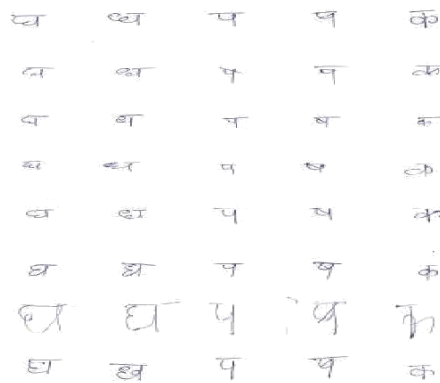 घ ध प ष क
घ ध प प क
घ ध प ष क
घ ध प ष क
घ ध प ष क
घ घ प ष क
घ घ प ष क
घ ख प ष क